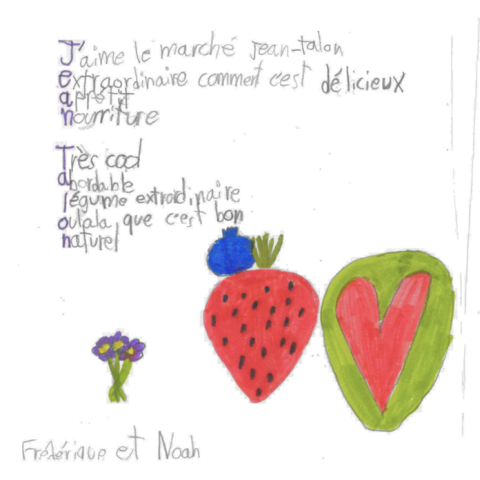 J'aime le marché Jean-talon
extraordinaire comment c'est délicieux
appétit
nourriture
Très cool
abordable
légume extraordinaire
oulala, que c'est bon
naturel
Frédérique et Noah